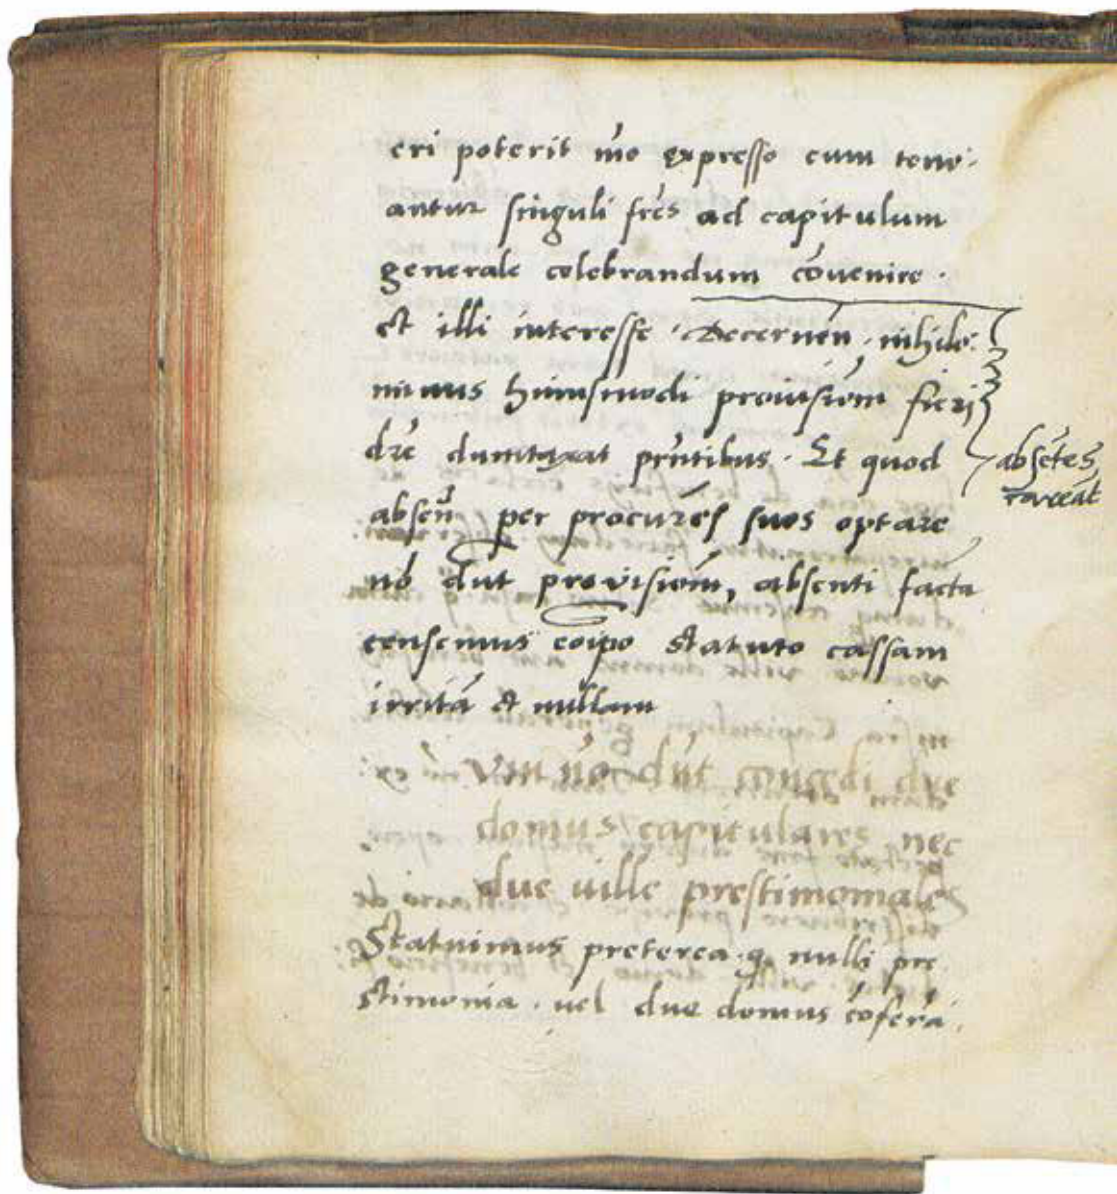 eri poterit mo expresso cum tene-
antur singuli fres ad capitulum
generale celebrandum cōuenire.
et illi interesse. Decernen. nihilo-
minus huiusmodi prouisiōm fieri
dre dumtaxat pn̄tibus. Et quod
absen̄ per procures suos optare
nō dn̄t provisiōm, absenti facta
censemus eoipo statuto cassam
irritā et nullam
absētes
caveāt
nō dn̄t concedi due
domus capitulares nec
due uille prestimoniales
Statuimus preterea q. nulli pre-
stimonia. uel due domus cōferā.